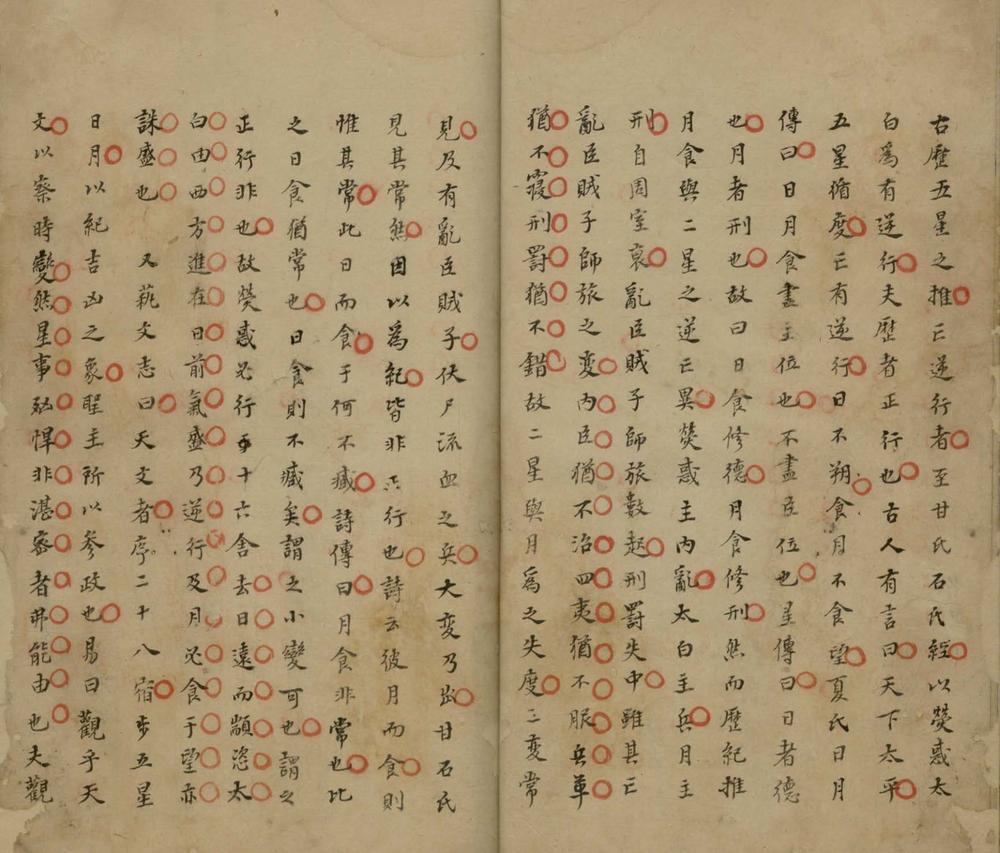 古歷五星之推亡逆行者至甘氏石氏經以熒惑太
白爲有逆行夫歷者正行也古人有言曰天下太平
五星循度亡有逆行日不朔食月不食望夏氏日月
傳曰日月食盡主位也不盡臣位也星傳曰日者德
也月者刑也故曰日食修德月食修刑然而歷紀推
月食與二星之逆亡異熒惑主內亂太白主兵月主
刑自周室衰亂臣賊子師旅數起刑罰失中雖其亡
亂臣賊子師旅之變內臣猶不治四夷猶不服兵革
猶不寢刑罰猶不錯故二星與月爲之失度三變常
見及有亂臣賊子伏尸流血之兵大變乃出甘石氏
見其常然因以爲紀皆非正行也詩云彼月而食則
惟其常此日而食于何不臧詩傳曰月食非常也比
之日食猶常也日食則不臧矣謂之小變可也謂之
正行非也故熒惑必行十六舍去日遠而顓恣太
白由西方進在日前氣盛乃逆行及月必食于望亦
誅盛也　又蓺文志曰天文者序二十八宿步五星
日月以紀吉凶之象聖王所以參政也易曰觀乎天
文以察時變然星事㓙悍非湛密者弗能由也夫觀